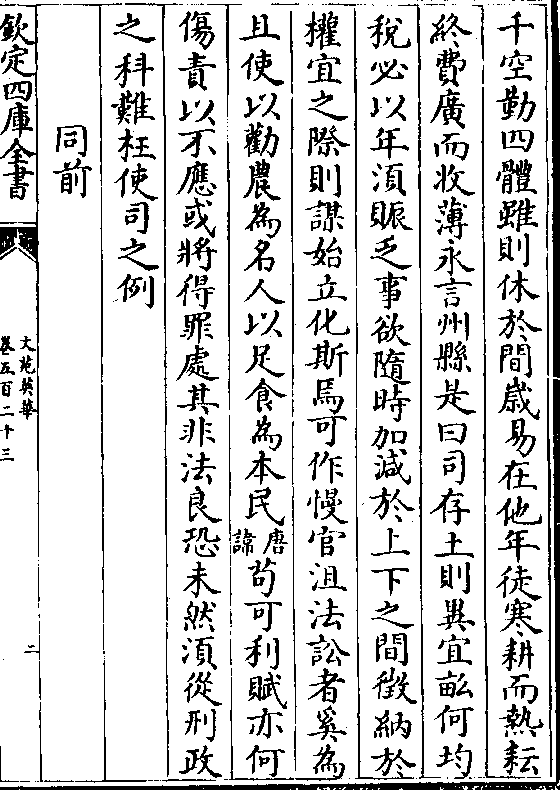 千空勤四體雖則休於間歲易在他年徒寒耕而熱耘
終費廣而收薄永言州縣是曰司存土則異宜畝何均
稅必以年湏賑乏事欲隨時加減於上下之間徴納於
權宜之際則謀始立化斯焉可作慢官沮法訟者奚為
且使以勸農為名人以足食為本民唐諱茍可利賦亦何
傷責以不應或將得罪處其非法良恐未然湏從刑政
之科難枉使司之例
同前
欽定四庫全書
文苑英華
卷五百二十三
二